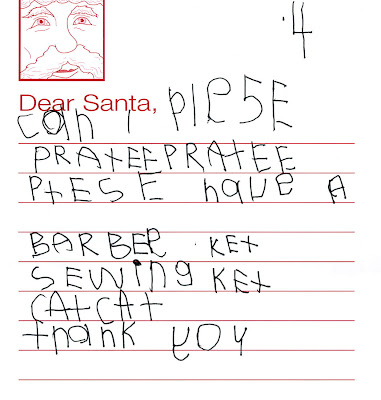 4
Dear Santa,
can i plESE
PRATEEPRATEE
PtESE have A
BARBER KEt
SEWing KEt
CAtCAt
thank you